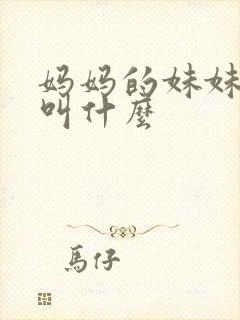 妈妈的妹妹
叫什麼
馬仔